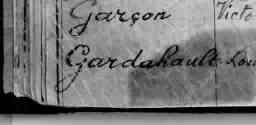 Garçon Victo
Gardahault Lou